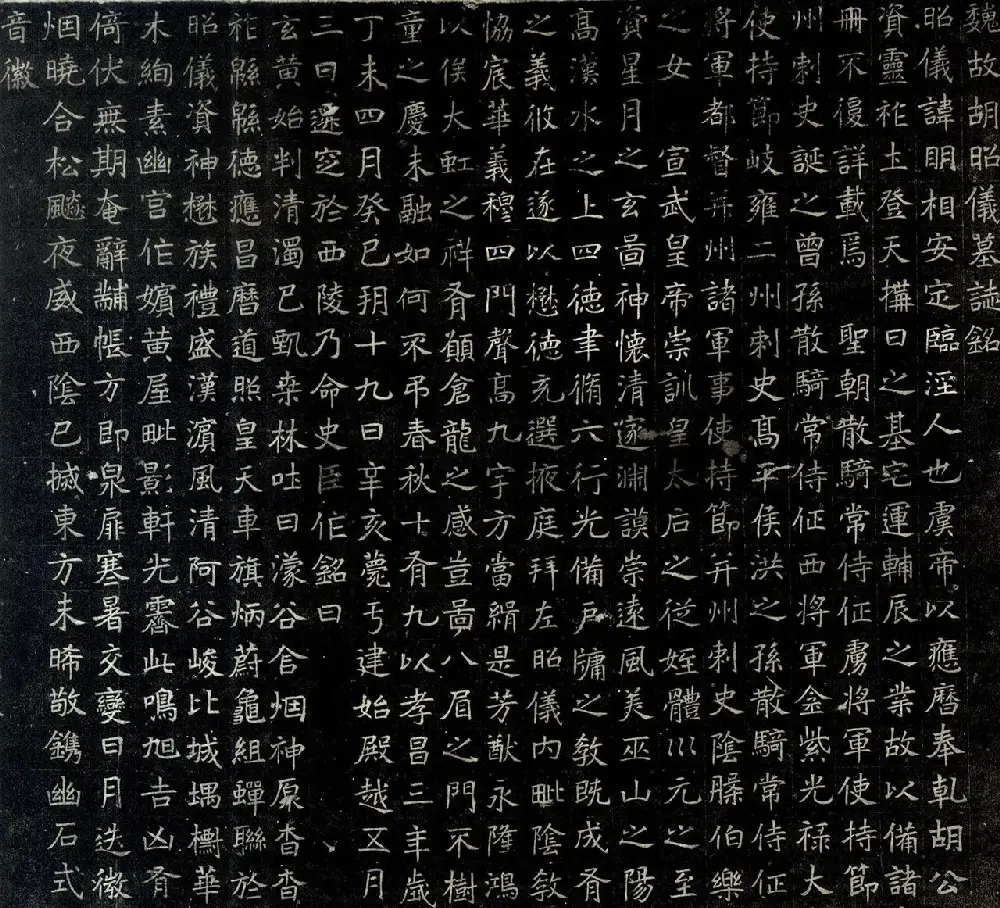 魏故胡昭儀墓誌銘
昭儀諱明相安定臨涇人也虞帝以應曆奉乹胡公
資靈祚土登天構日之基宅運輔辰之業故以備諸
冊不復詳載焉 聖朝散騎常侍征虜將軍使持節
州刺史誕之曾孫散騎常侍征西將軍金紫光祿大
使持節岐雍二州刺史髙平侯洪之孫散騎常侍征
將軍都督并州諸軍事使持節并州刺史陰槃伯樂
之女 宣武皇帝崇訓皇太后之従姪體川元之至
資星月之玄啚神懷清邃渊謨崇遠風美巫山之陽
髙漢水之上四德聿脩六行光備戸牖之敎旣成有
之義攸在遂以懋德充選掖庭拜左昭儀内毗陰敎
協宸華義穆四門聲髙九宇方當緝是芳猷永隆鴻
以俟大虹之祥有願倉龍之感豈啚八眉之門不樹
童之慶未融如何不弔春秋十有九以孝昌三年歲
丁未四月癸巳朔十九日辛亥薨于建始殿越五月
三日遷窆於西陵乃命史臣作銘曰
玄黄始判清濁巳甄桒林吐日濛谷含烟神原杳杳
祚緜緜德應昌曆道熙皇天車旗炳蔚龜組蟬聯於
昭儀資神懋族禮盛漢濵風清阿谷峻比城堣欎華
木絢素幽宫作嬪黄屋毗影軒光霑此鳴旭吉凶有
倚伏無期奄辭黼帳方即泉扉寒暑交變日月迭微
烟曉合松飈夜威西陰巳掝東方未晞敬鐫幽石式
音徽